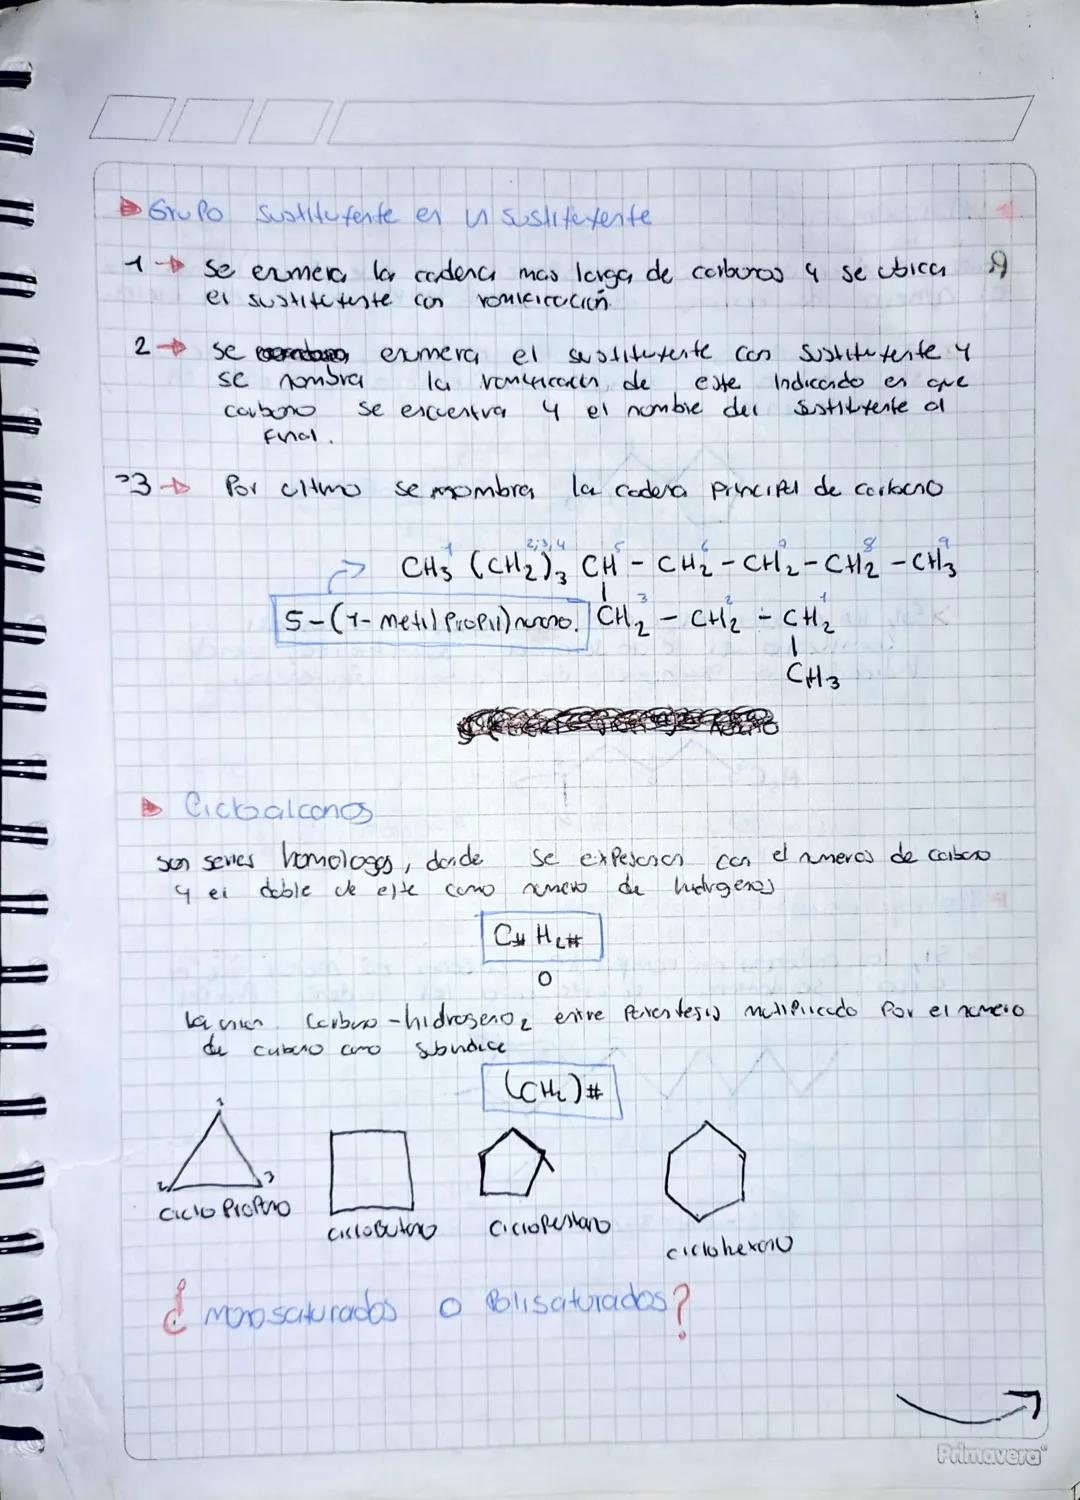 Grupo sustituyente en un sustituyente
1 → se enumera la cadena mas larga de carbonos y se ubica
el sustituyente con ramificación
2 → se enumera el sustituyente con sustituyente y
se nombra la ramificación de este indicando en que
carbono se encuentra y el nombre del sustituyente al
final.
3 → Por ultimo se nombra la cadena principal de carbono
1 2,3,4 5 6 8 9
CH3 (CH2)3 CH - CH2 - CH2 - CH2 - CH3
3 2 1
5-(1-metil Propil) nonano. CH2 - CH2 - CH2
CH3
Cicloalcanos
son series homologas, donde se expresan con el numeros de carbono
y el doble de este como numero de hidrogenos
C# H2#
o
la union carbono-hidrogeno2 entre Parentesis multiplicado Por el numero
de carbono como subindice
(CH2)#
1
2 3
ciclo Propano
cicloButano
cicloPentano
ciclohexano
¿monosaturados o Polisaturados?
Primavera